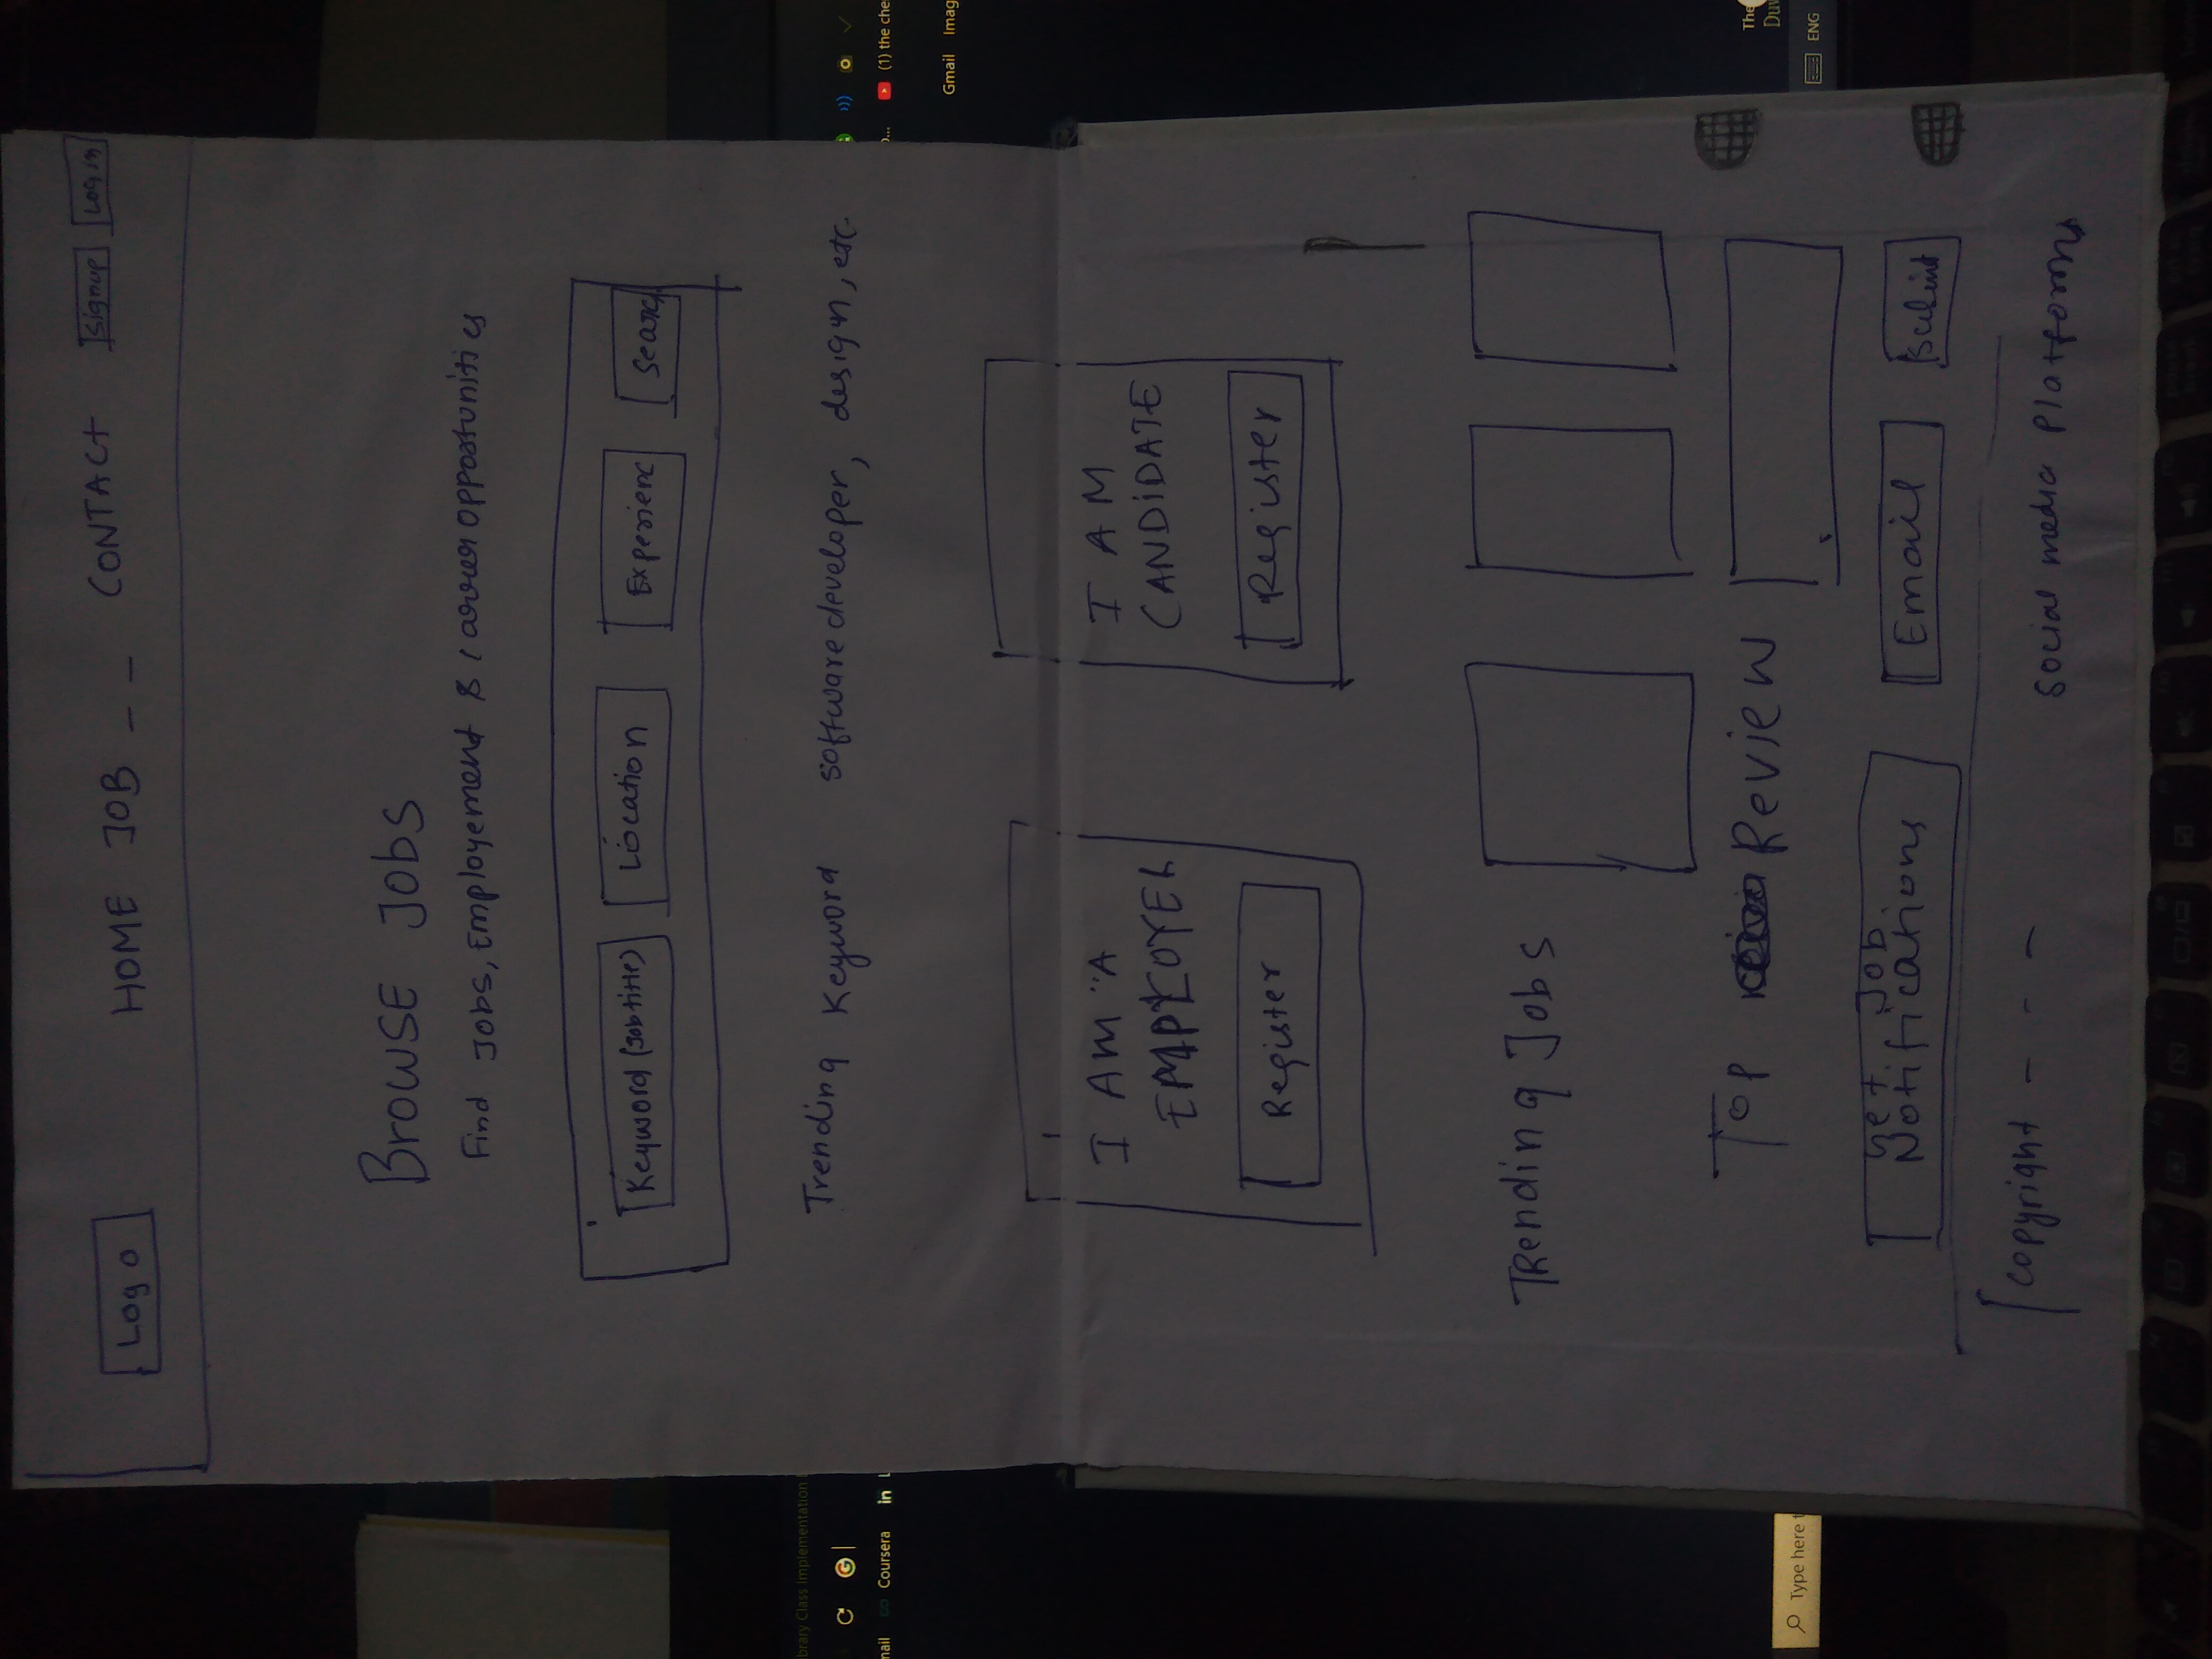 Logo HOME JOB _ _ CONTACT Signup Log in
BROWSE JObS
Find Jobs, Employement & carrer opportunities
Keyword (Job title) Location Experienc Search
Trending Keyword software developer, design, etc.
I AM A
EMPLOYER
I AM
CANDIDATE
Register
Register
TRending Jobs
Top Review
Get Job
Notifications
Email
Submit
Copyright - - -
Social media Platforms
ibrary Class Implementation
mail Coursera in L
(1) the che
Gmail Imag
Type here t
The
Duv
ENG